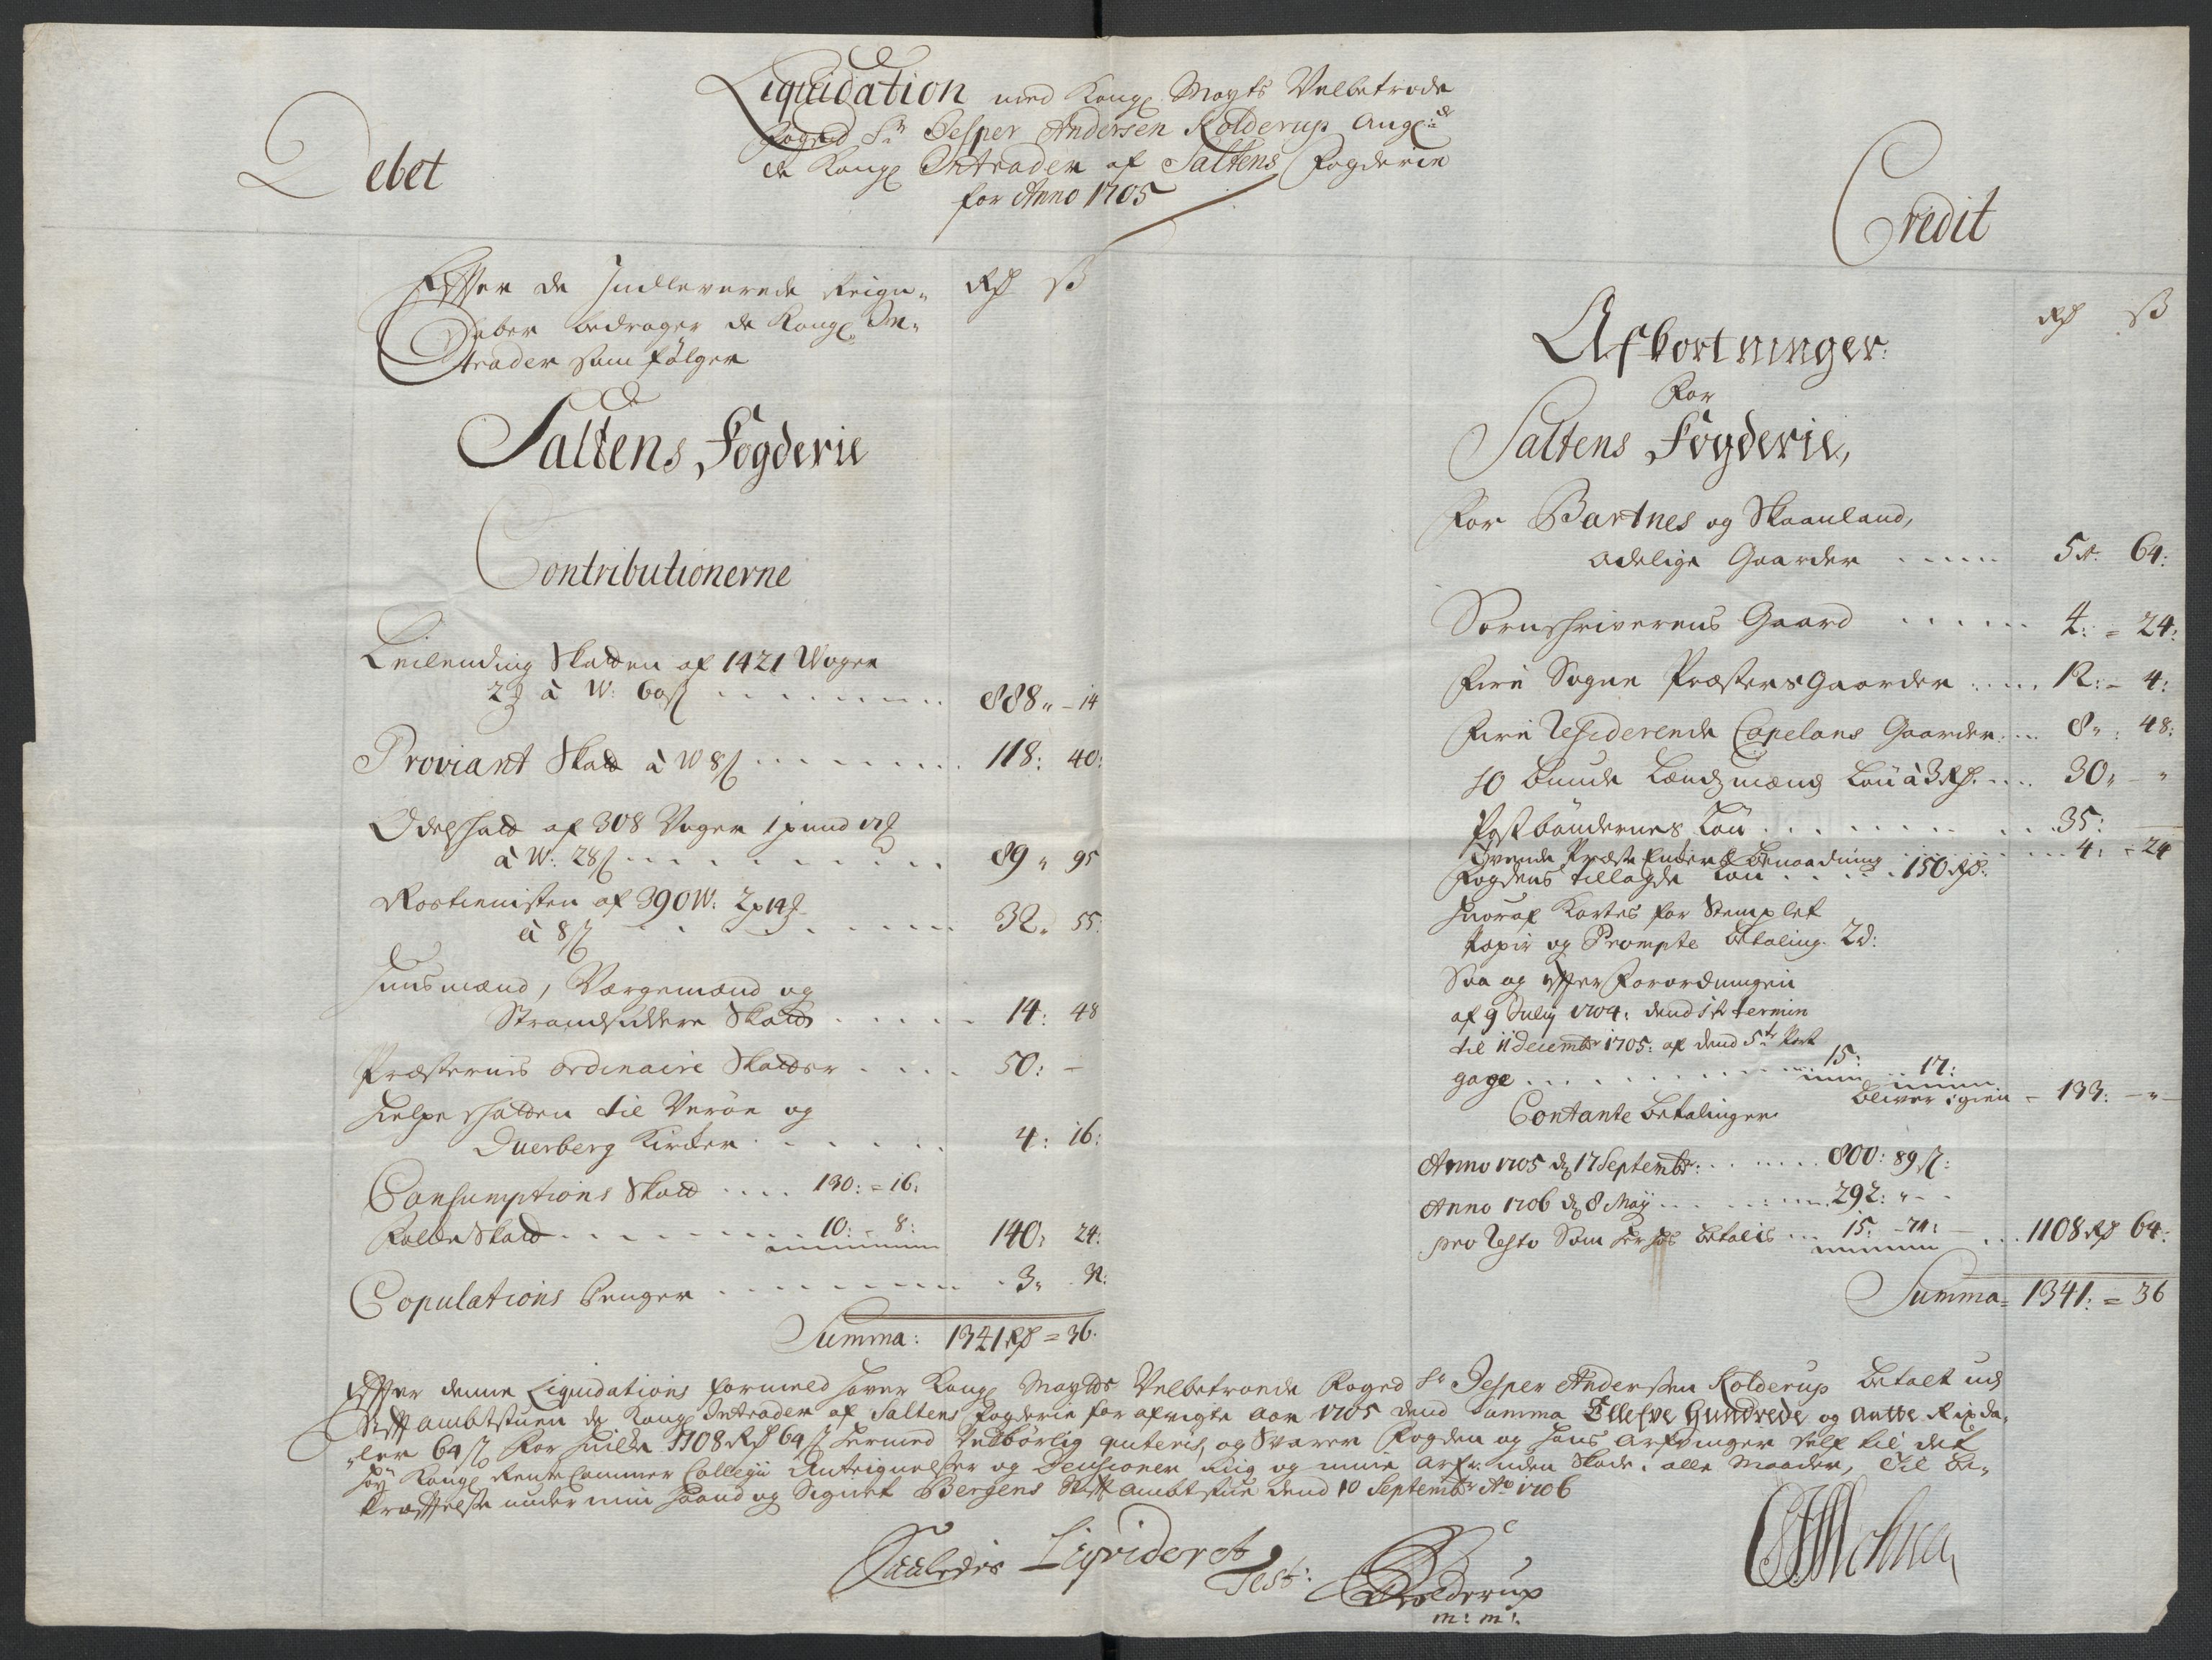 Liquidation med Kongl Mayts Velbetrode
Foged Sr Jesper Andersen Kolderup Angl:de
de Kongl Intrader af Saltens Fogderie
for Anno 1705
Debet
Credit
Efter de Indleverede Reign-
skaber bedrager de Kongl In-
trader som følger
Rd ß
Saltens Fogderie
Contributionerne
Leilending Skatten af 1421 Woger
2 à W: 60 ß ........ 888 " - 14
Proviant Skatt à W 8 ß ........ 118: 40:
Odelskatt af 308 Voger 1 pund
à W: 28 ß ........ 89 " 95
Rostienisten af 390 W: 2 p 14
à 8 ß ........ 32 " 55:
Huusmænd, Værgemænd og
Strandsiddere Skatt ..... 14: 48
Præsternis ordinaire Skatter .... 50: -
Hielpe skatten til Verøe og
Querberg Kircker ...... 4: 16:
Consumptions Skatt .... 130: = 16:
Folke Skatt ........ 10: - 8: 140: 24:
Copulations Penger ........ 3 " 32:
Summa: 1341 Rd = 36.
Rd ß
Afkortninger:
For
Saltens Fogderie,
For Bartnes og Skaanland,
Adelige Gaarder ..... 5 Rd. 64:
Sornskriverens Gaard ...... 4: = 24:
Fire Sogne Præsters Gaarder ..... 12: - 4:
Fire Residerende Capelans Gaarder .... 8 " : 48:
10 Bunde Lændsmænds Løn à 3 Rd. .... 30 " - "
Postbøndernes Løn ........ 35: -
Præste Enkers Benaadning ........ 4: = 24
Fogdens tillagde Løn ..... 150 Rd:
Huoraf Kortes for Stemplet
Papir og Prompte Betaling. 2 d:
Saa og efter Forordningen
af 9 Julij 1704: dend 1ste termin
til 11 Decembr 1705: af dend 5te Part
gage .......... 15: .. 17:
bliver igien - 133: - " -
Contante Betalinger
Anno 1705 d 17 Septembr: ...... 800: 89 ß:
Anno 1706 d 8 Maij ........ 292: " - -
pro Resto Som her hos Betalis ... 15: - 71: - ... 1108 Rd 64:
Summa = 1341: = 36
Efter denne Liquidations formeld haver Kongl Maytds Velbetroede Foged Sr Jesper Andersen Kolderup Betalt udi
Stiftambtstuen de Kongl Intrader af Saltens Fogderie for afvigte Aar 1705 dend Summa Ellefve Hundrede og Aatte Rixda-
ler 64 ß For huilke 1108 Rd 64 ß hermed tilbørlig quiteris, og Svarer Fogden og hans Arfvinger self til det
høy Kongl Rente Cammer Collegii Antegnelser og Decisioner Mig og mine Arfv: uden Skade i alle Maader, Til Be-
kræftelse under min Haand og Signet Bergens Stiftambtstue dend 10 Septembr Ao 1706
Saaledes Liqvideret
Test:
Kolderup
m: m: